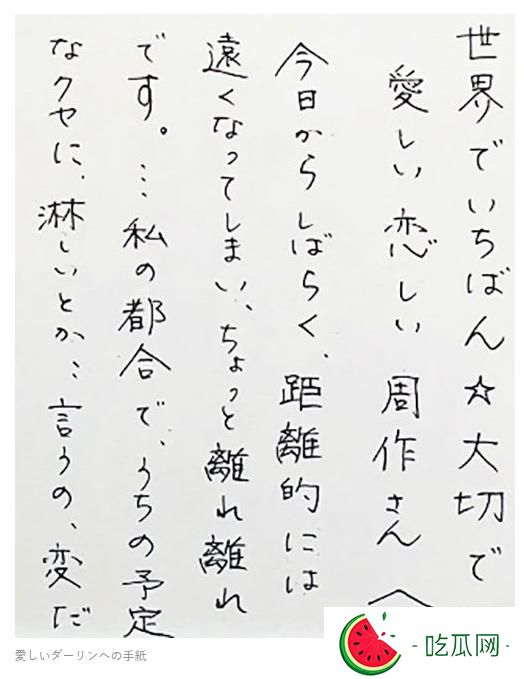 世界でいちばん☆大切で
愛しい恋しい周作さんへ
今日からしばらく、距離的には
遠くなってしまい、ちょっと離れ離れ
です。…私の都合で、うちの予定
なクセに、淋しいとか…言うの、変だ
愛しいダーリンへの手紙
·吃瓜网·